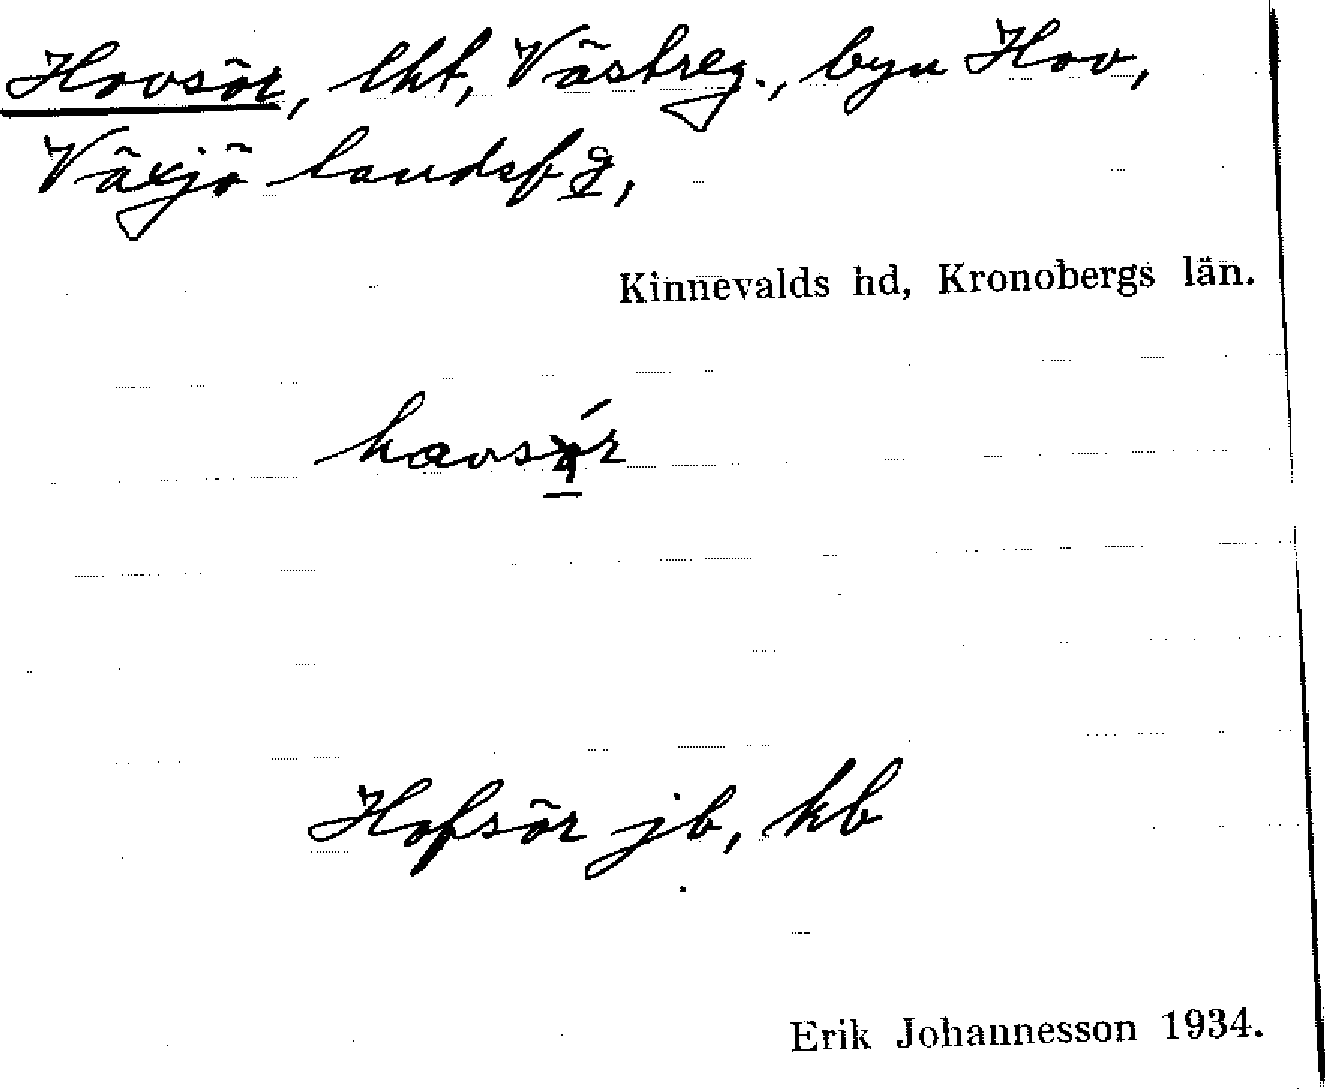 Hovsör, lht, Västreg., byn Hov,
Växjö landsf g,
Kinnevalds hd, Kronobergs län.
Hofsör jb, kb
Erik Johannesson 1934.